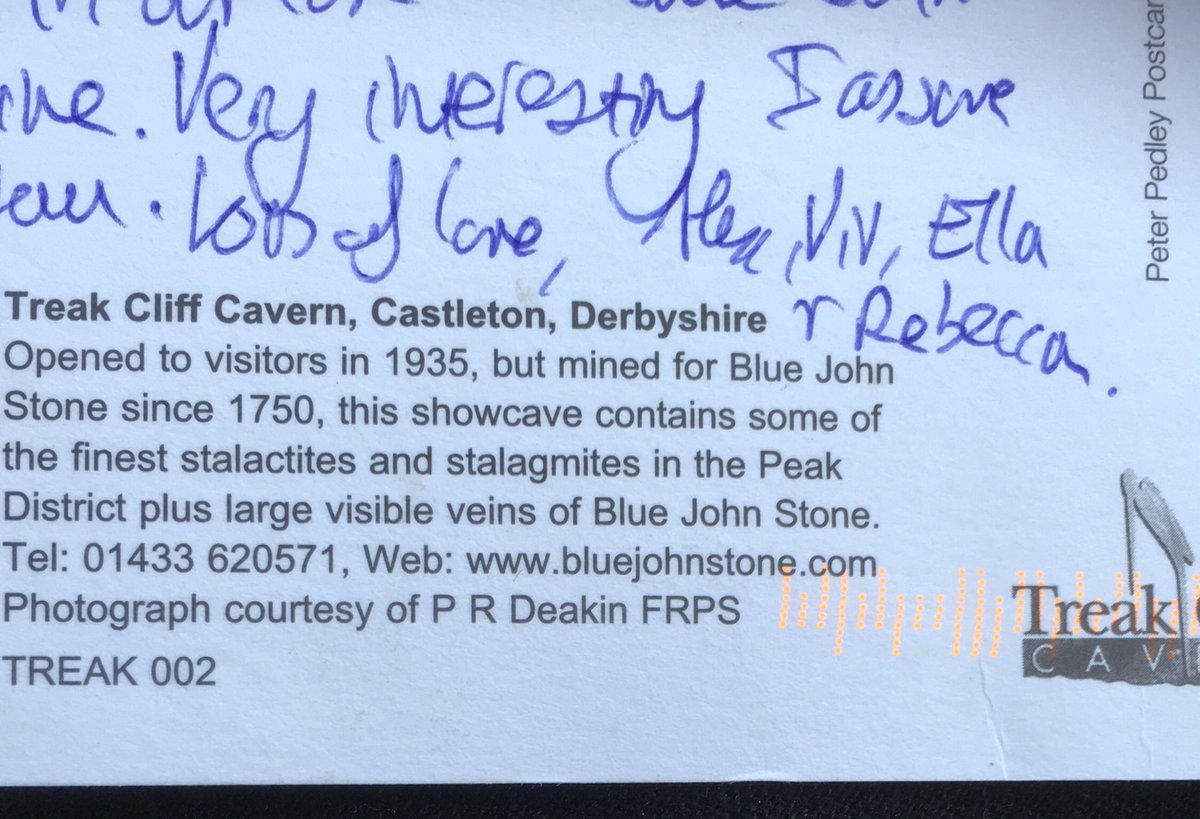 Very interesting I assure
you. Lots of love, Alex, Viv, Ella
+ Rebecca.
Treak Cliff Cavern, Castleton, Derbyshire
Opened to visitors in 1935, but mined for Blue John
Stone since 1750, this showcave contains some of
the finest stalactites and stalagmites in the Peak
District plus large visible veins of Blue John Stone.
Tel: 01433 620571, Web: www.bluejohnstone.com
Photograph courtesy of P R Deakin FRPS
TREAK 002
Peter Pedley Postcar
Treak
CAV